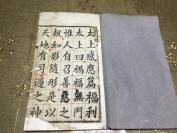 太上感應篇福利
太上曰禍福無門
惟人自召善惡之
報如影隨形是以
天地有司過之神